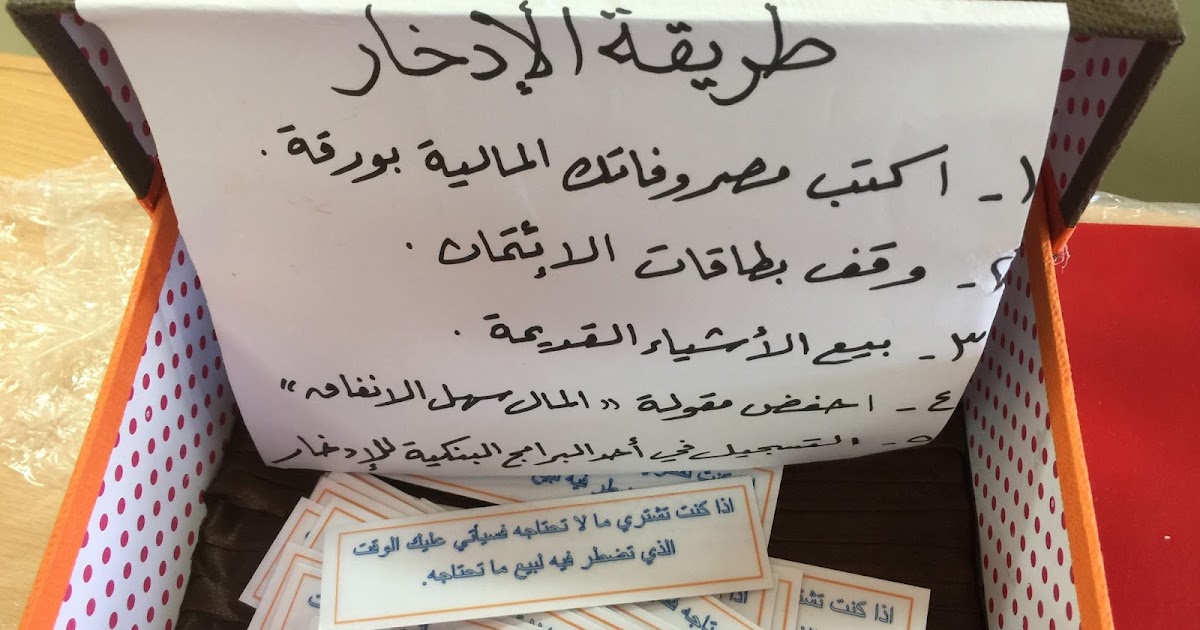 طريقة الإدخار
١- اكتب مصروفاتك المالية بورقة .
٢- وقف بطاقات الإئتمان .
٣- بيع الأشياء القديمة .
٤- احفض مقولة "المال سهل الانفاق"
٥- التسجيل في أحد البرامج البنكية للإدخار
اذا كنت تشتري ما لا تحتاجه فسيأتي عليك الوقت
الذي تضطر فيه لبيع ما تحتاجه.
اذا كنت تشت